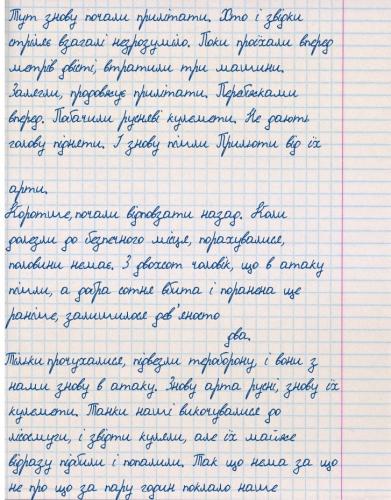 Тут знову почали прилітати. Хто і звідки
стріляє взагалі незрозуміло. Поки проїхали вперед
метрів двісті, втратили три машини.
Залягли, продовжує прилітати. Перебіжками
вперед. Побачили русневі кулемети. Не дають
голову підняти. І знову пішли Прильоти від їх
арти.
Коротше, почали відповзати назад. Коли
долезли до безпечного місця, порахувалися,
половини немає. З двохсот чоловік, що в атаку
пішли, а добра сотне вбита і поранена ще
раніше, залишилося дев'яносто
два.
Тільки прочухалися, підвезли тероборону, і вони з
нами знову в атаку. Знову арта русні, знову їх
кулемети. Танки наші викочувалися до
лісосмуги, і звідти куляли, але їх майже
відразу підбили і попалили. Так що нема за що
не про що за пару годин поклало наше